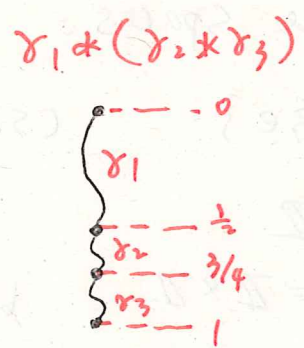 γ₁ * (γ₂ * γ₃)
0
γ₁
1/2
γ₂
3/4
γ₃
1